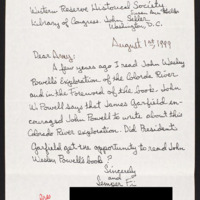 Western Reserve Historical Society
Library of Congress. John Sellers
Washington, D.C.
August 1st, 1999
Dear Amy:
A few years ago I read John Wesley
Powell's Exploration of the Colorado River
and in the Foreword of the book. John
W. Powell says that James Garfield en-
couraged John Powell to write about this
Colorado River exploration. Did President
Garfield get the opportunity to read John
Wesley Powell's book?
Sincerely
and
Semper Fi